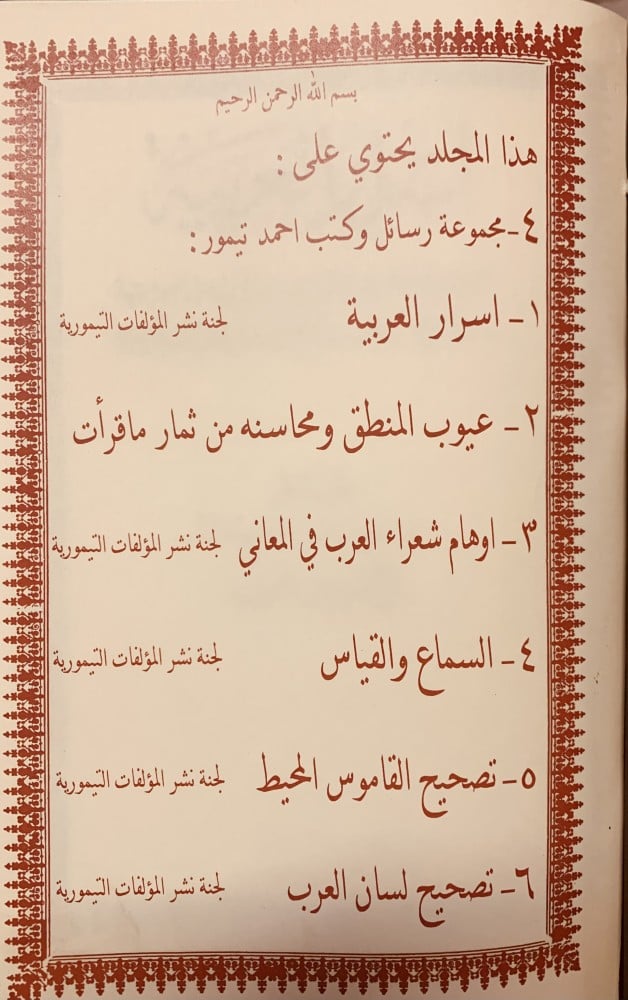 بسم الله الرحمن الرحيم
هذا المجلد يحتوي على :
٤-مجموعة رسائل وكتب احمد تيمور :
١- اسرار العربية لجنة نشر المؤلفات التيمورية
٢- عيوب المنطق ومحاسنه من ثمار ماقرأت
٣- اوهام شعراء العرب في المعاني لجنة نشر المؤلفات التيمورية
٤- السماع والقياس لجنة نشر المؤلفات التيمورية
٥- تصحيح القاموس المحيط لجنة نشر المؤلفات التيمورية
٦- تصحيح لسان العرب لجنة نشر المؤلفات التيمورية